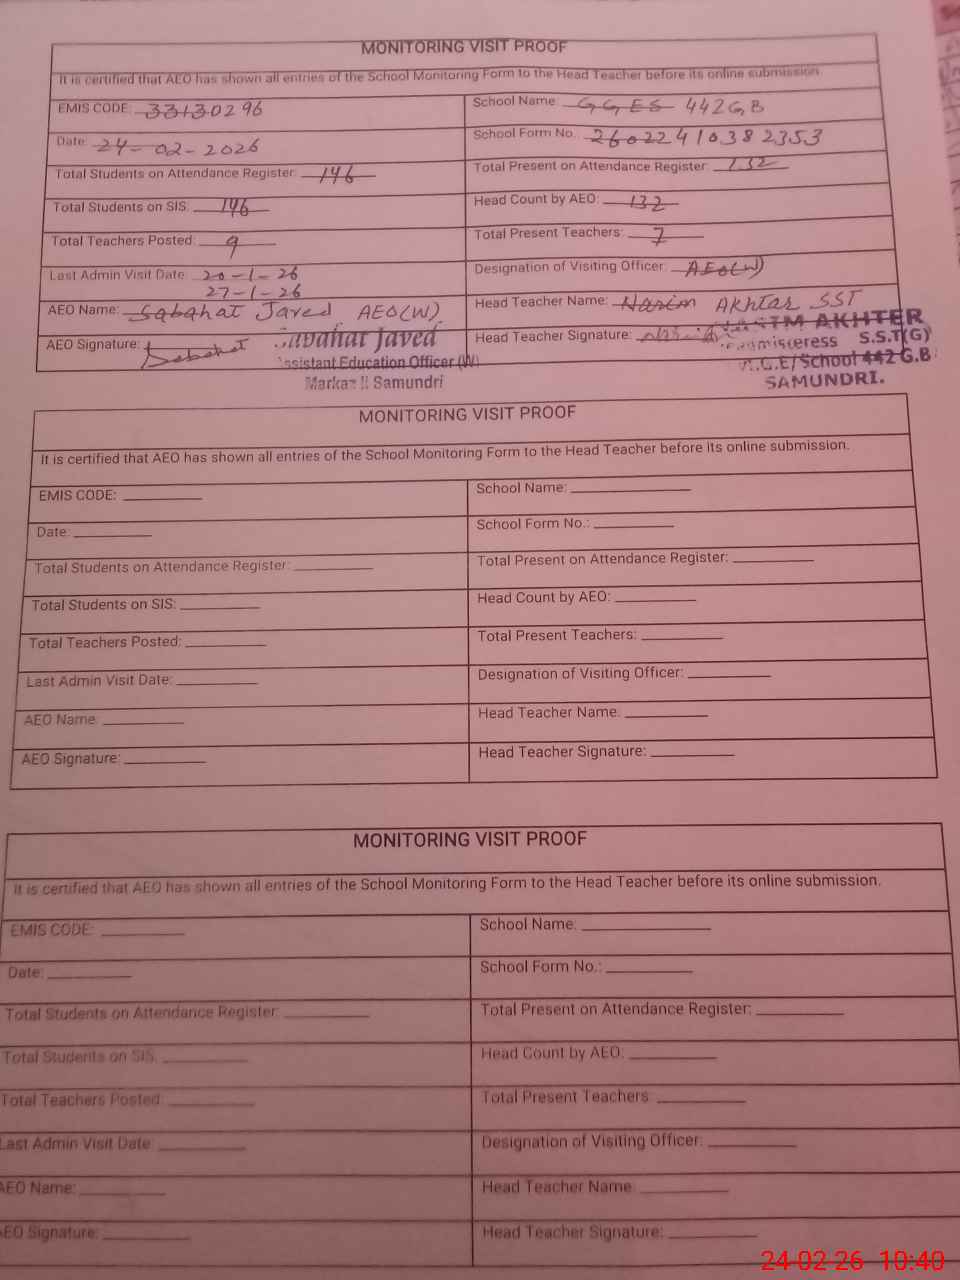 MONITORING VISIT PROOF
It is certified that AEO has shown all entries of the School Monitoring Form to the Head Teacher before its online submission.
EMIS CODE: 33130296
School Name: GGES 442GB
Date: 24-02-2026
School Form No.: 26022410382353
Total Students on Attendance Register: 146
Total Present on Attendance Register: 132
Total Students on SIS: 146
Head Count by AEO: 132
Total Teachers Posted: 9
Total Present Teachers: 7
Last Admin Visit Date: 20-1-26
27-1-26
Designation of Visiting Officer: AEO(W)
AEO Name: Sabahat Javed AEO(W)
Head Teacher Name: Akhtar SST
AEO Signature: Sabahat
Sabahat Javed
Assistant Education Officer (W)
Markaz II Samundri
Head Teacher Signature:
AKHTER
S.S.T(G)
G.E/School 442 G.B
SAMUNDRI.
MONITORING VISIT PROOF
It is certified that AEO has shown all entries of the School Monitoring Form to the Head Teacher before its online submission.
EMIS CODE:
School Name:
Date:
School Form No.:
Total Students on Attendance Register:
Total Present on Attendance Register:
Total Students on SIS:
Head Count by AEO:
Total Teachers Posted:
Total Present Teachers:
Last Admin Visit Date:
Designation of Visiting Officer:
AEO Name:
Head Teacher Name:
AEO Signature:
Head Teacher Signature:
MONITORING VISIT PROOF
It is certified that AEO has shown all entries of the School Monitoring Form to the Head Teacher before its online submission.
EMIS CODE:
School Name:
Date:
School Form No.:
Total Students on Attendance Register:
Total Present on Attendance Register:
Total Students on SIS:
Head Count by AEO:
Total Teachers Posted:
Total Present Teachers:
Last Admin Visit Date:
Designation of Visiting Officer:
AEO Name:
Head Teacher Name:
AEO Signature:
Head Teacher Signature:
24-02-26 10:40